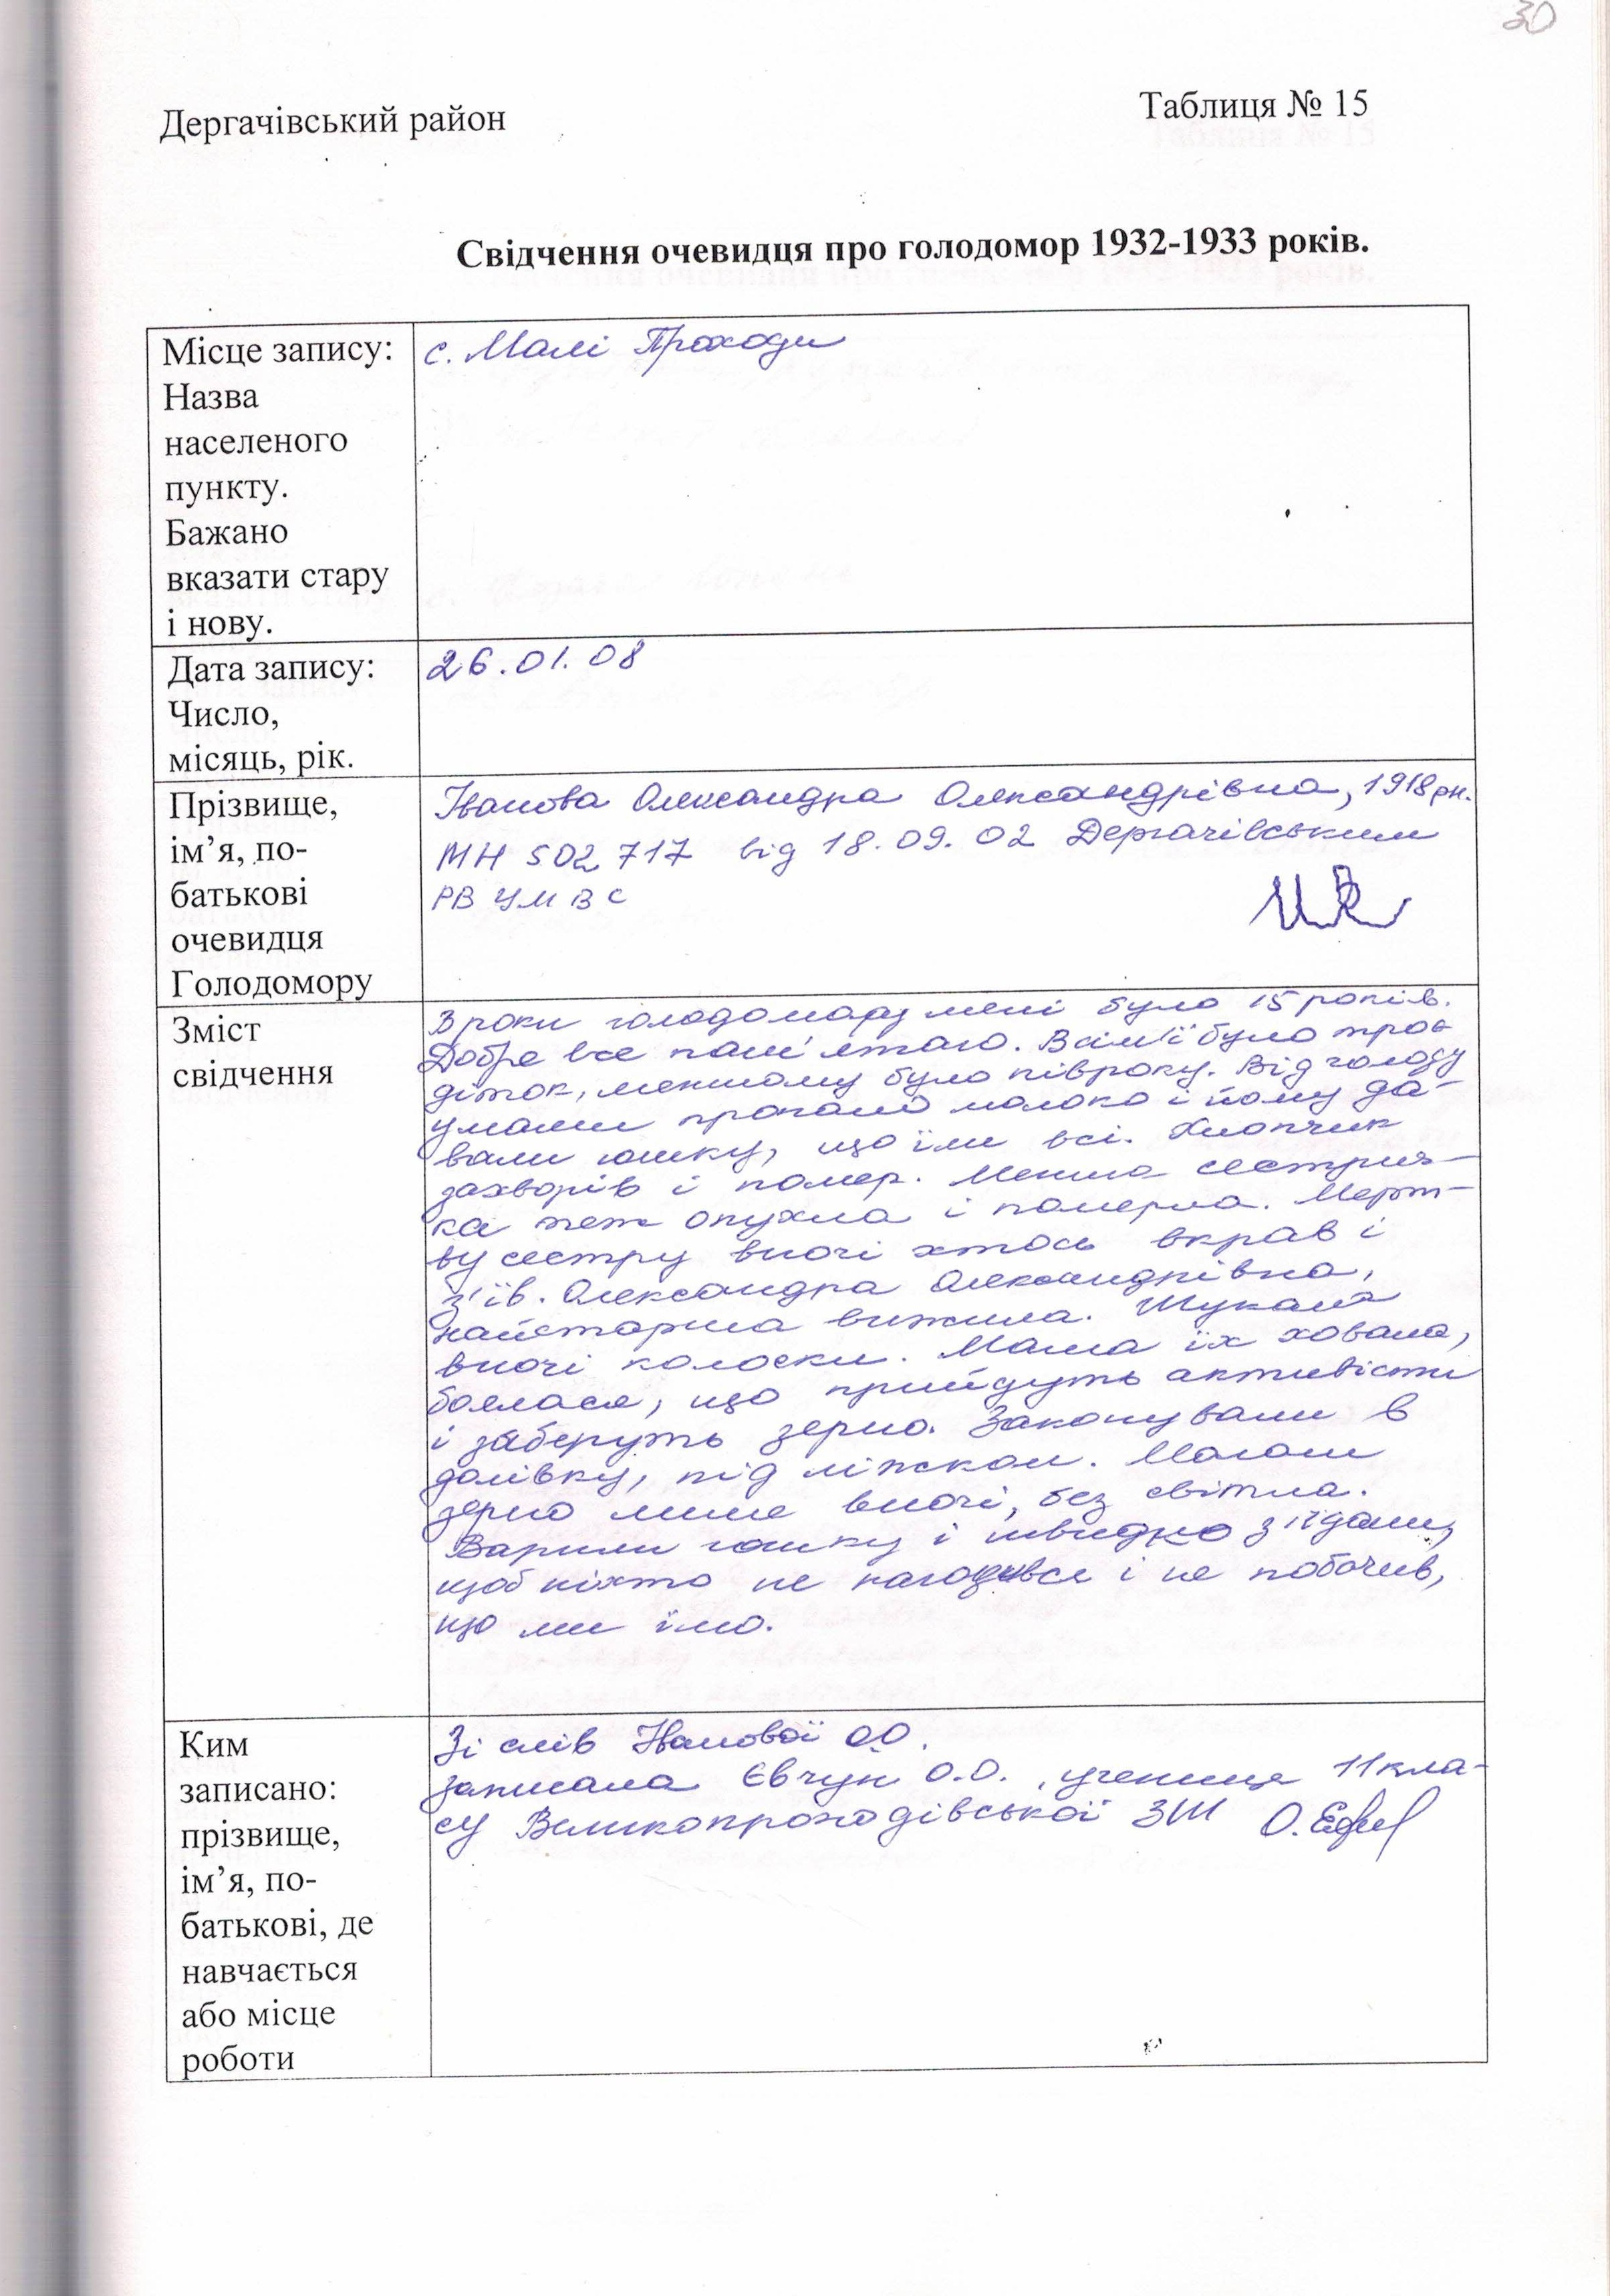 30
Дергачівський район
Таблиця № 15
Свідчення очевидця про голодомор 1932-1933 років.
Місце запису:
Назва
населеного
пункту.
Бажано
вказати стару
і нову.
с. Малі Проходи
Дата запису:
Число,
місяць, рік.
26.01.08
Прізвище,
ім’я, по-
батькові
очевидця
Голодомору
Іванова Олександра Олександрівна, 1918 рн.
МН 502717 від 18.09.02 Дергачівським
РВ УМВС
Зміст
свідчення
В роки голодомору мені було 15 років.
Добре все пам'ятаю. В сім'ї було троє
діток, меншому було півроку. Від голоду
у мами пропало молоко і йому да-
вали юшку, що їли всі. Хлопчик
захворів і помер. Менша сестрич-
ка теж опухла і померла. Мерт-
ву сестру вночі хтось вкрав і
з'їв. Олександра Олександрівна,
найстарша вижила. Шукала
вночі колоски. Мама їх ховала,
боялася, що прийдуть активісти
і заберуть зерно. Закопували в
долівку, під ліжком. Мололи
зерно лише вночі, без світла.
Варили юшку і швидко з'їдали,
щоб ніхто не нагодився і не побачив,
що ми їмо.
Ким
записано:
прізвище,
ім’я, по-
батькові, де
навчається
або місце
роботи
Зі слів Іванової О.О.
записала Євчун О.О., учениця 11 кла-
су Великопроходівської ЗШ